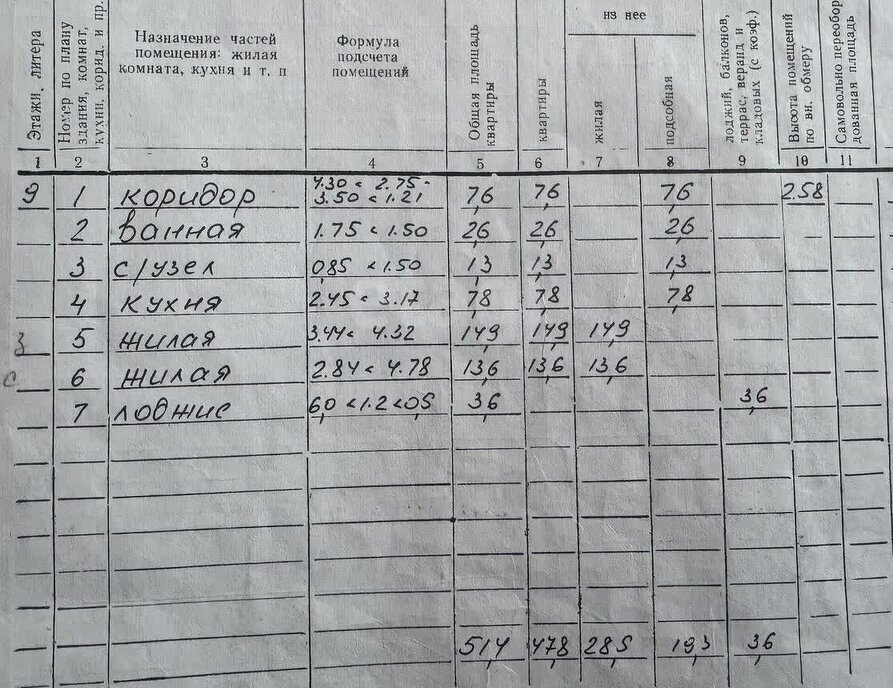 Этажи, литера
Номер по плану здания, комнат, кухни, корид. и пр.
Назначение частей помещения: жилая комната, кухня и т. п
Формула подсчета помещений
Общая площадь квартиры
квартиры
из нее
жилая
подсобная
лоджий, балконов, террас, веранд и кладовых (с коэф.)
Высота помещений по вн. обмеру
Самовольно переоборудованная площадь
1 2 3 4 5 6 7 8 9 10 11
9 1 коридор 4.30 × 2.75 - 3.50 × 1.21 7,6 7,6 7,6 2.58
2 ванная 1.75 × 1.50 2,6 2,6 2,6
3 с/узел 0,85 × 1.50 1,3 1,3 1,3
4 кухня 2.45 × 3.17 7,8 7,8 7,8
5 жилая 3.44 × 4.32 14,9 14,9 14,9
6 жилая 2.84 × 4.78 13,6 13,6 13,6
7 лоджие 6,0 × 1.2 × 0,5 3,6 3,6
51,4 47,8 28,5 19,3 3,6